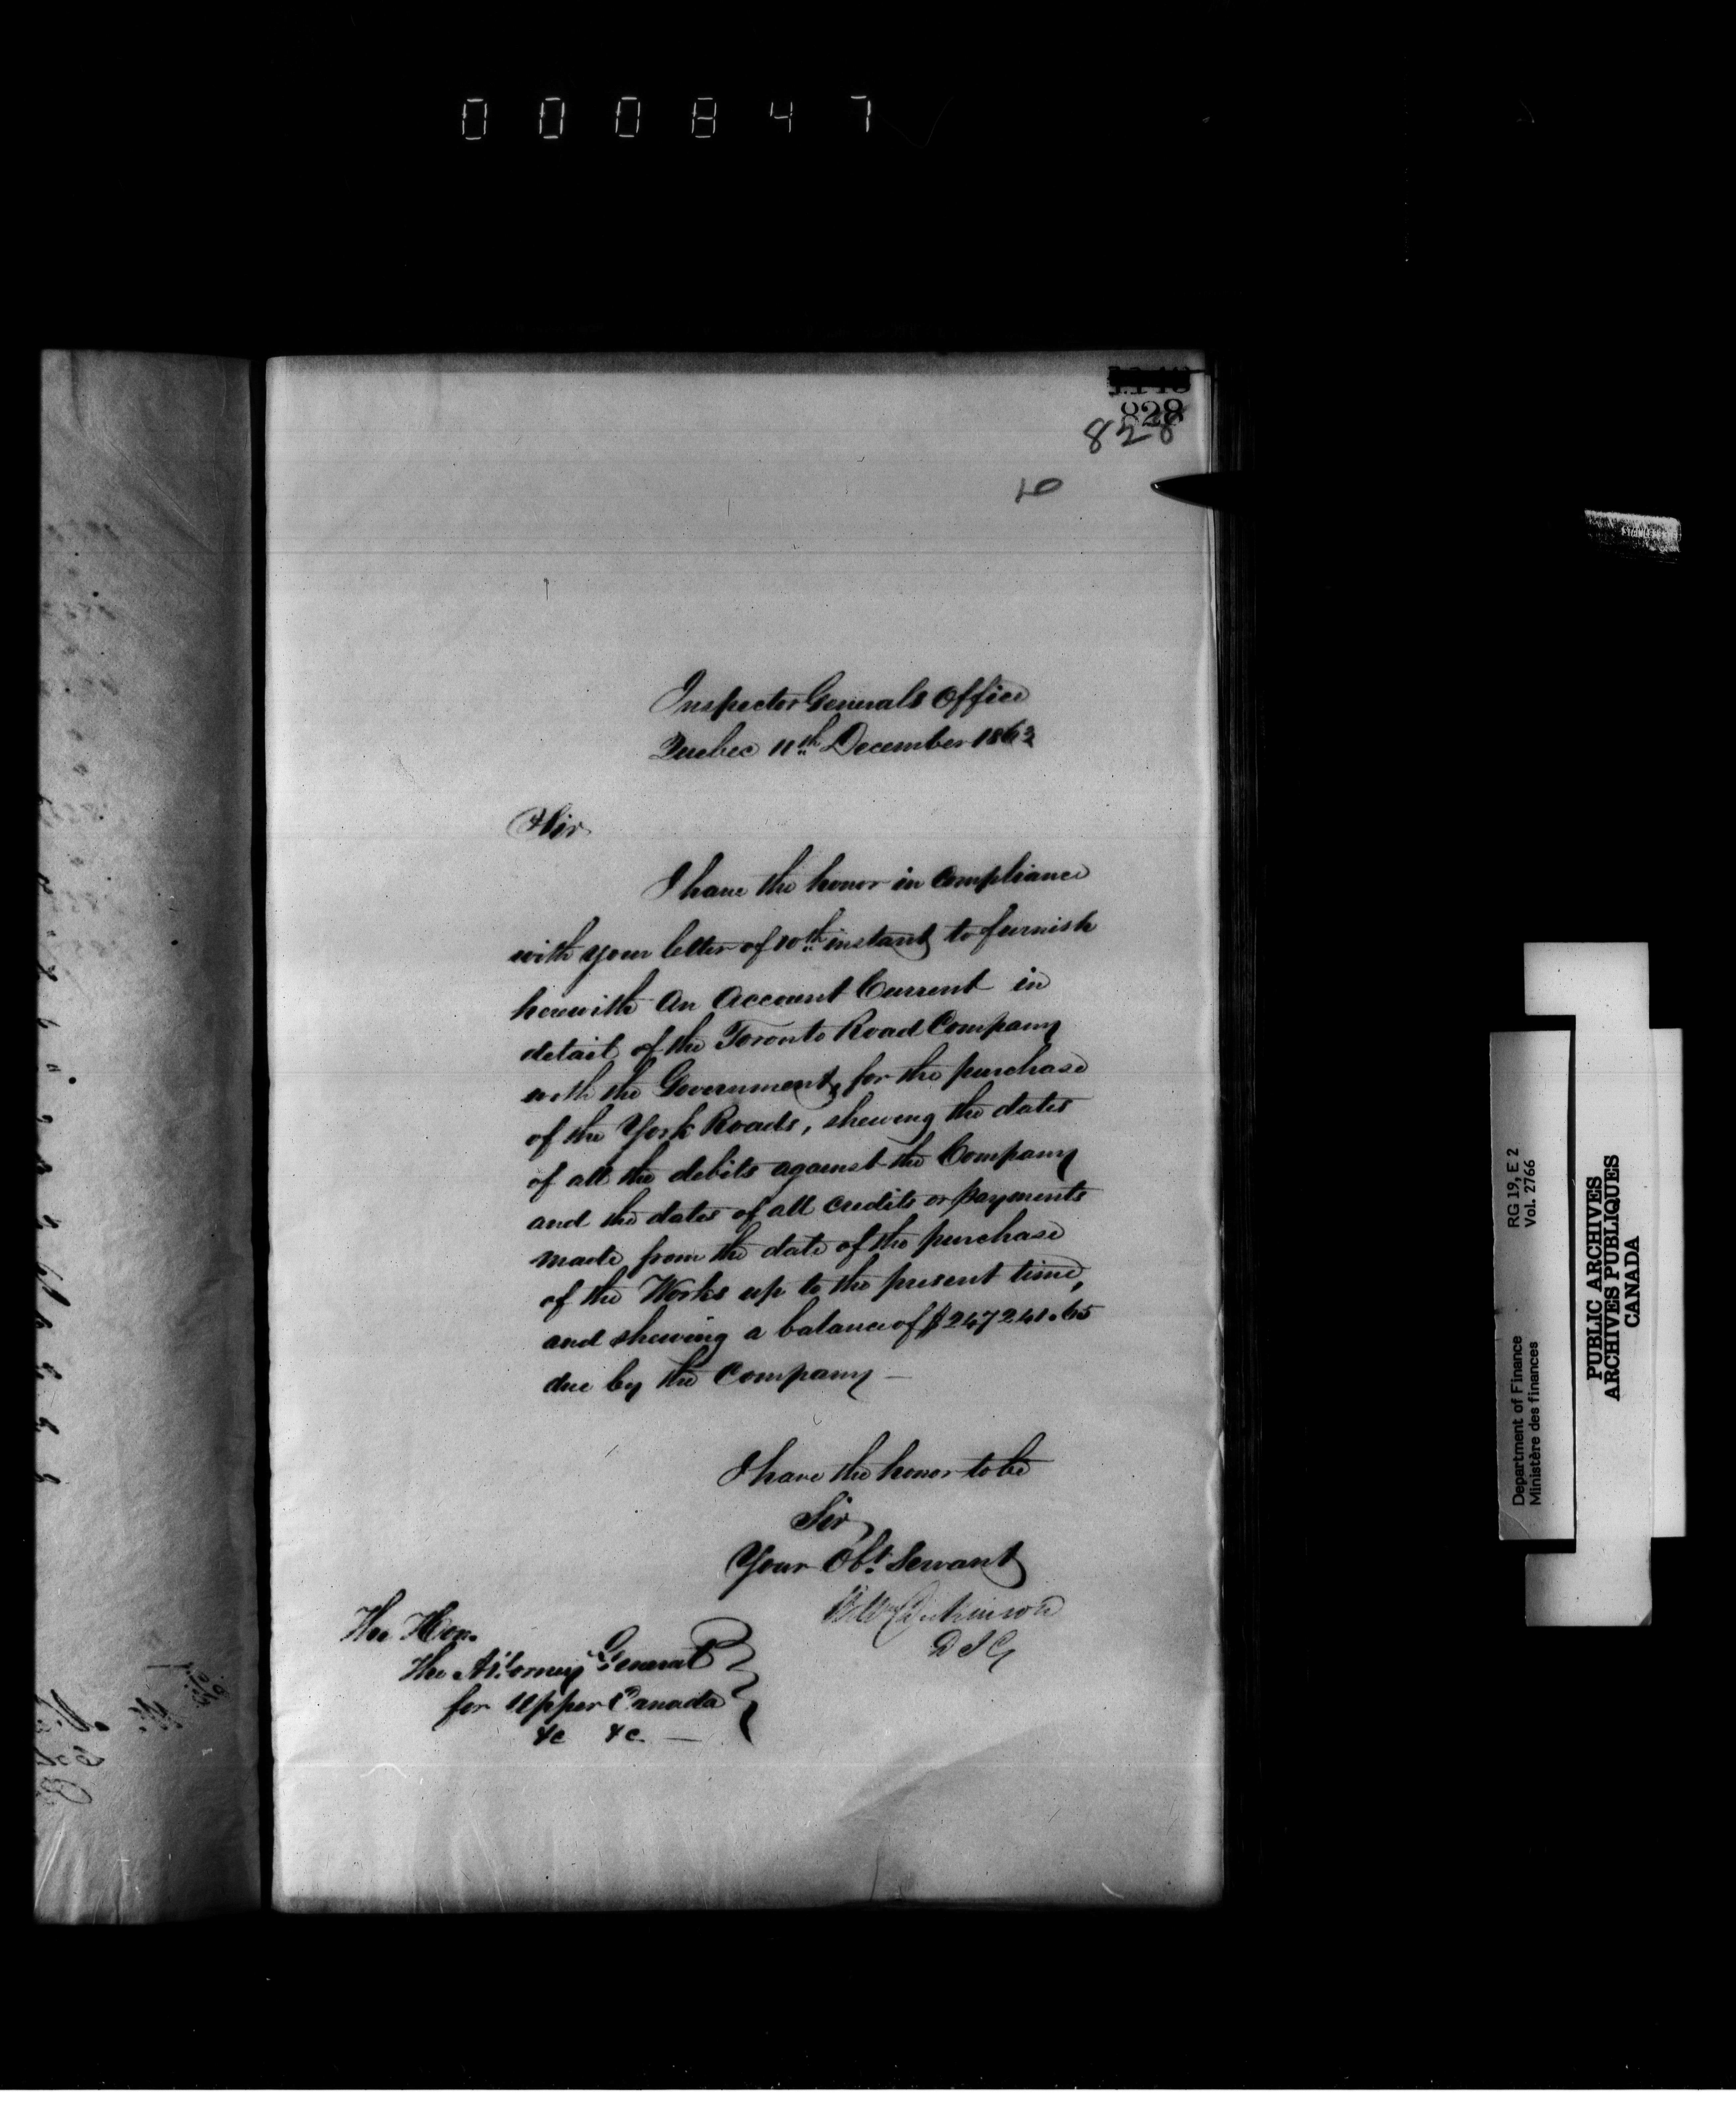 000847
828
828
16
Inspector Generals Office
Quebec 11th December 1862
Sir
I have the honor in compliance
with your letter of 10th instant to furnish
herewith an Account Current in
detail of the Toronto Road Company
with the Government, for the purchase
of the York Roads, shewing the dates
of all the debits against the Company
and the dates of all credits or payments
made from the date of the purchase
of the Works up to the present time,
and shewing a balance of $247241.65
due by the Company —
I have the honor to be
Sir
Your Obt. Servant
Dickinson
D I G
The Hon.
The Attorney General
for Upper Canada
&c &c —
RG 19, E 2
Vol. 2766
Department of Finance
Ministère des finances
PUBLIC ARCHIVES
ARCHIVES PUBLIQUES
CANADA